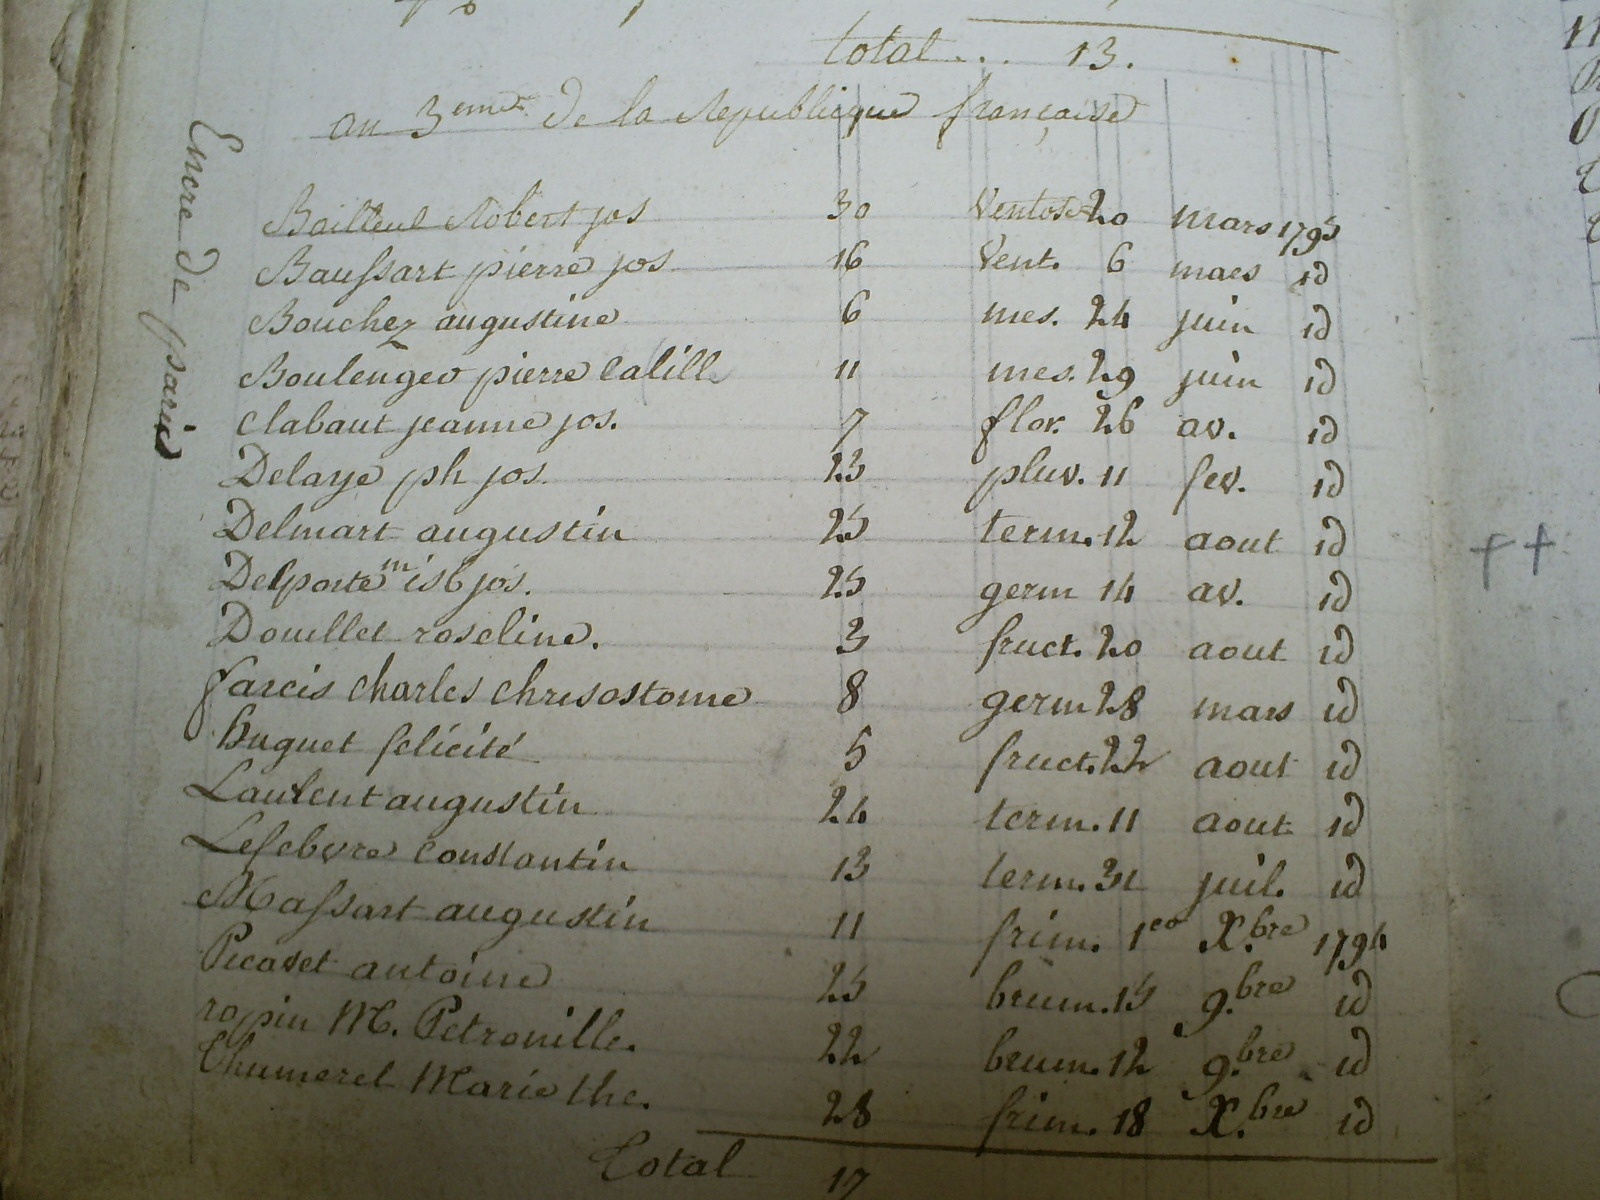 total... 13.
an 3eme de la Republique française
Encre de paris
Bailleul Robert jos 30 Ventose 20 mars 1795
Baussart pierre jos 16 Vent. 6 mars id
Bouchez augustine 6 mes. 24 juin id
Boulenger pierre Calill 11 mes. 29 juin id
Clabaut jeanne jos. 7 flor. 26 av. id
Delaye ph jos. 23 pluv. 11 fev. id
Delmart augustin 25 term. 12 aout id
Delporte m isb jos. 25 germ 14 av. id
Douillet roseline. 3 fruct. 20 aout id
farcis Charles Chrisostome 8 germ 28 mars id
huguet felicité 5 fruct. 22 aout id
Laulent augustin 24 term. 11 aout id
Lefebvre Constantin 13 term. 31 juil. id
Massart augustin 11 frim. 1er X.bre 1794
Picavet antoine 25 brum. 15 9.bre id
ropin M. Petronille. 22 brum. 12 9.bre id
Thumerel Marie the. 28 frim. 18 X.bre id
Total 17
++